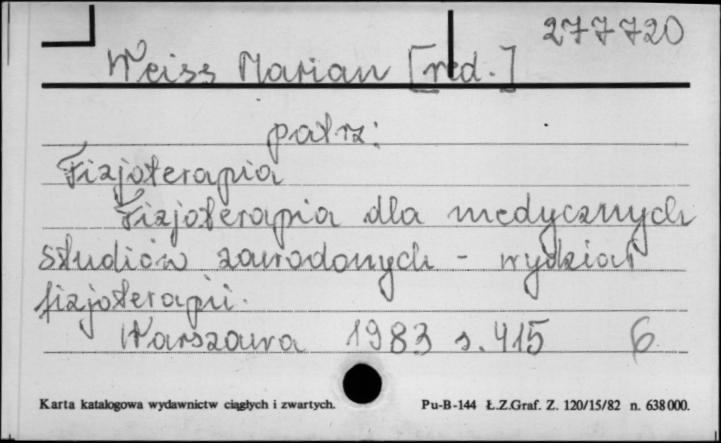 277720
Weiss Marian [red.]
patrz:
Fizjoterapia
Fizjoterapia dla medycznych
studiów zawodonych - wydział
fizjoterapii.
Warszawa 1983 s. 415 6
Karta katalogowa wydawnictw ciągłych i zwartych. Pu-B-144 Ł.Z.Graf. Z. 120/15/82 n. 638000.